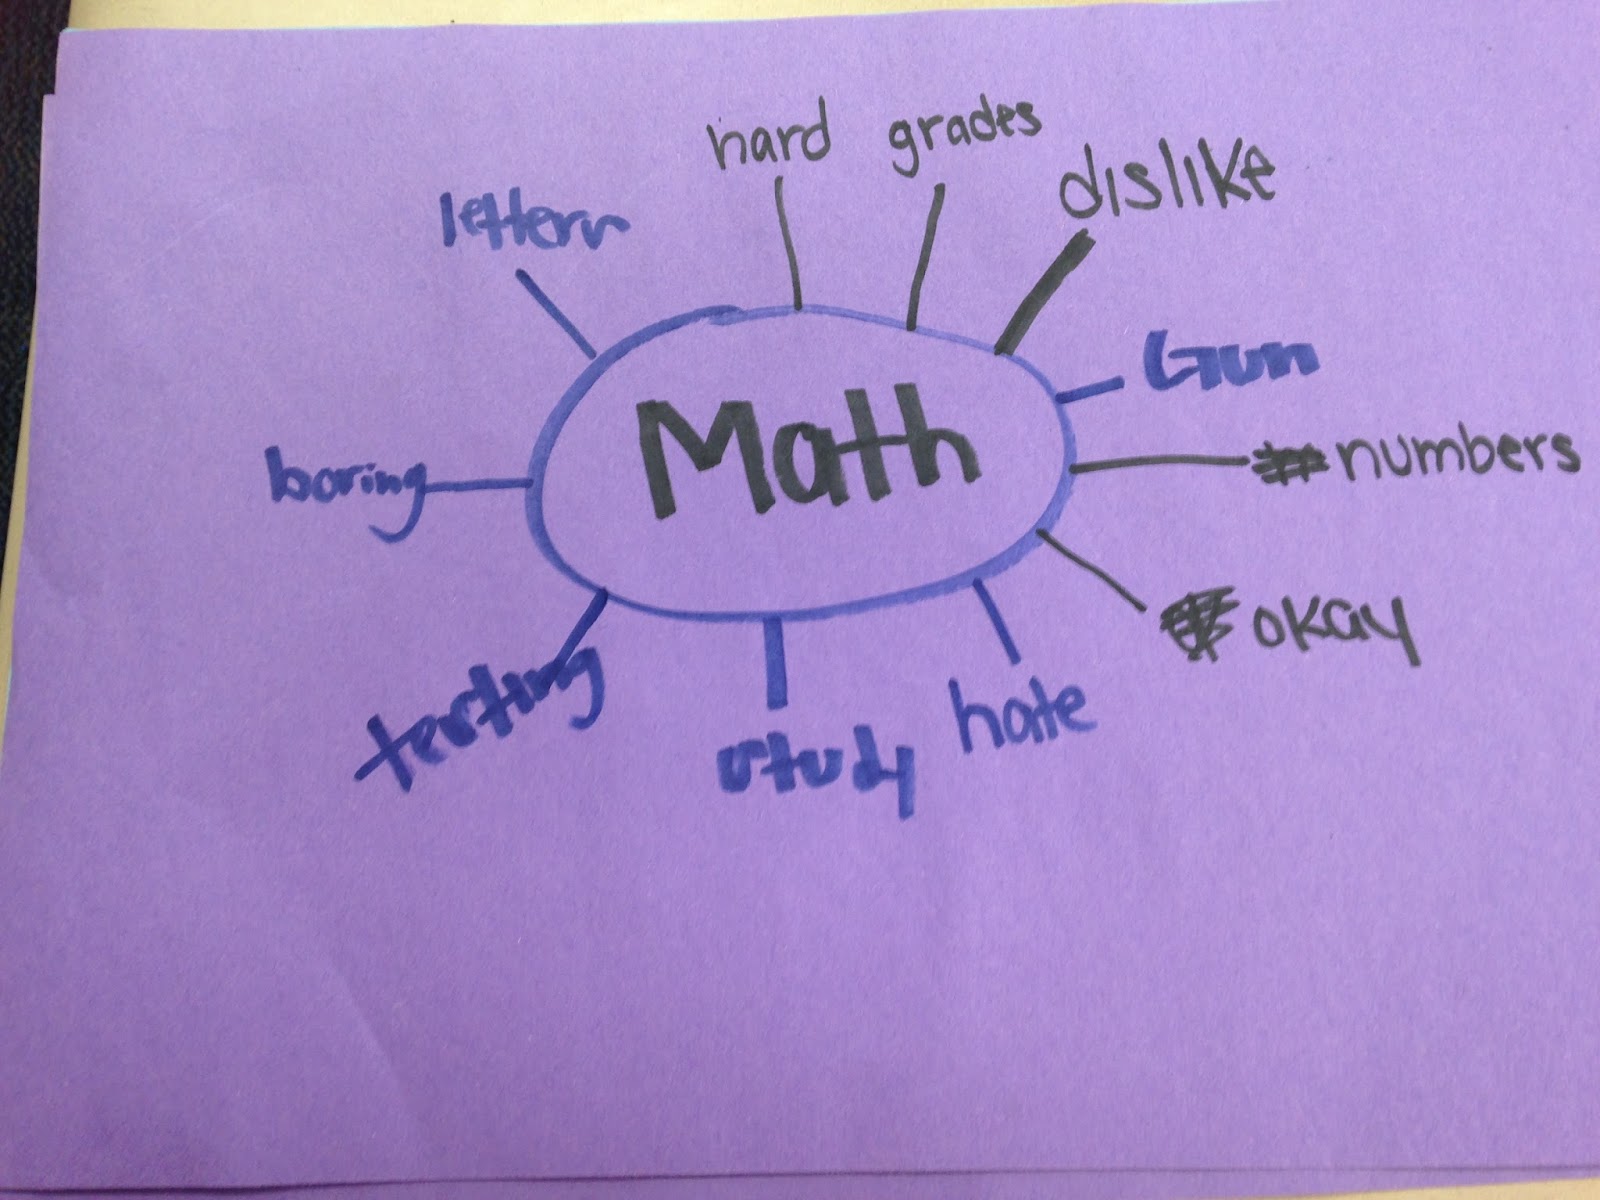 hard grades
dislike
letters
Math
numbers
boring
okay
testing
hate
study